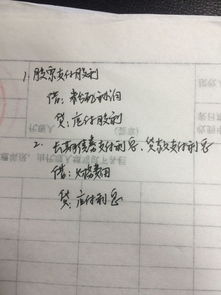 1. 股票支付股利
借：未分配利润
贷：应付股利
2. 长期债券支付利息、贷款支付利息
借：财务费用
贷：应付利息